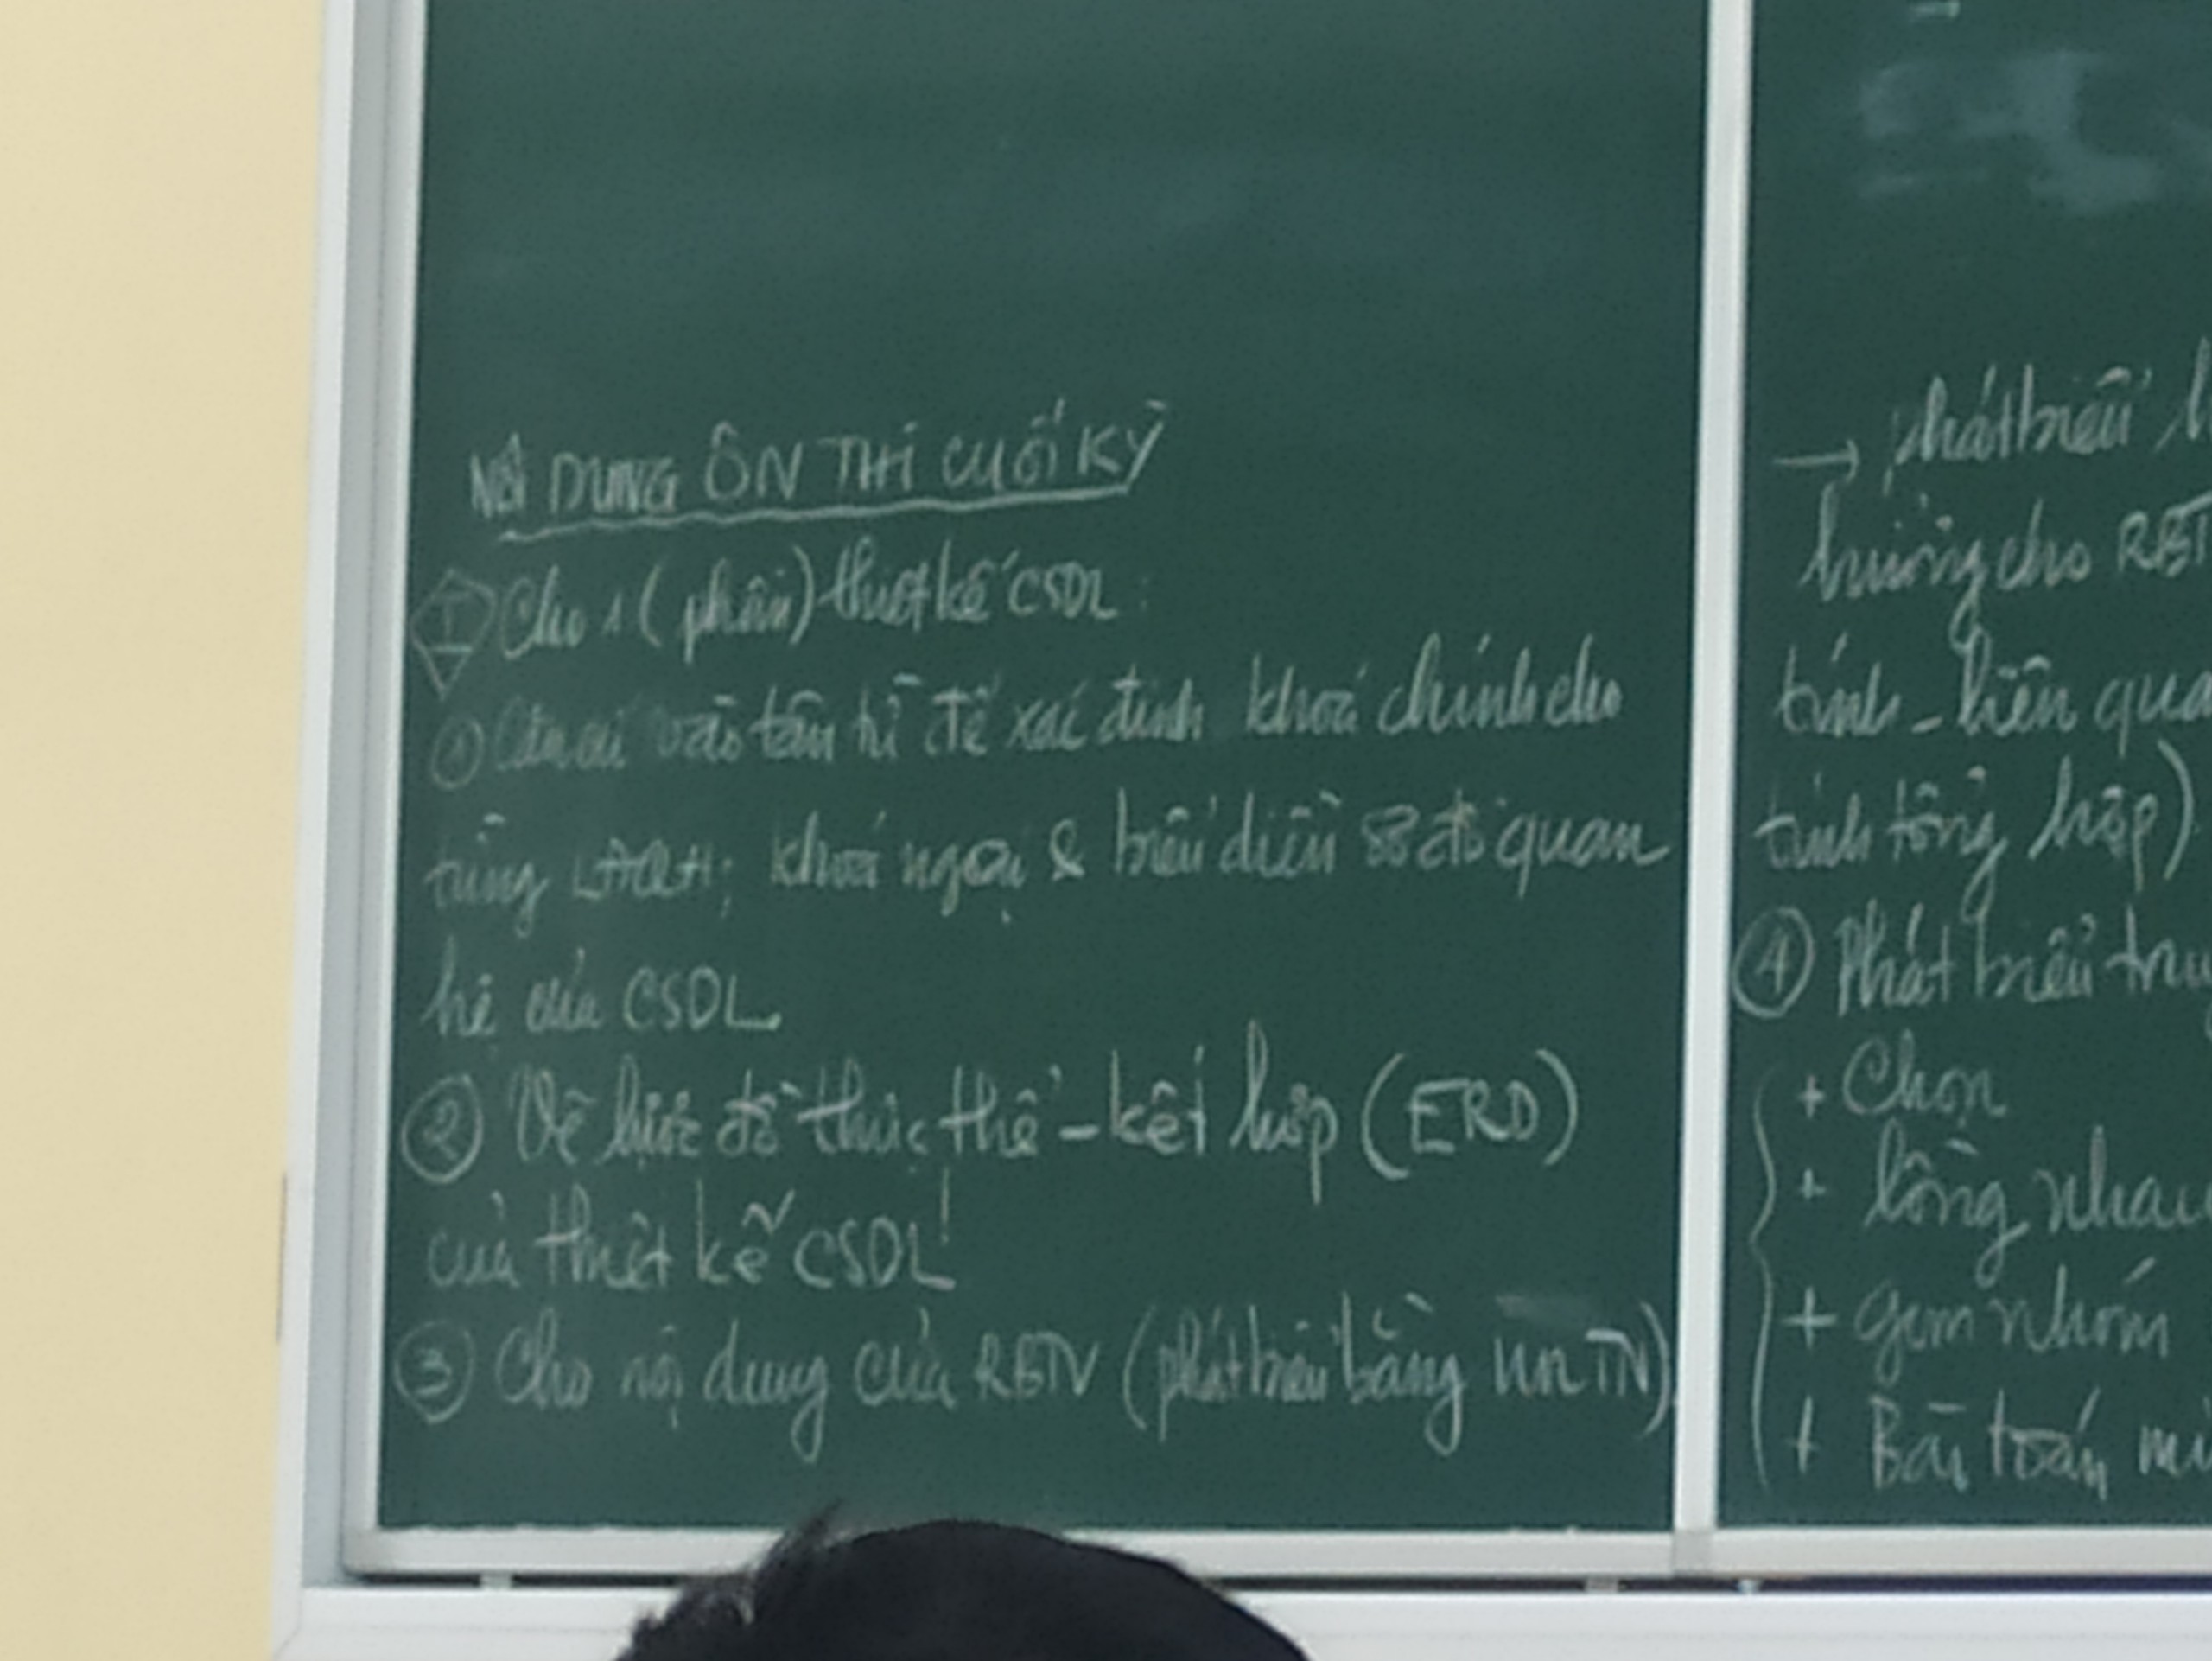 NỘI DUNG ÔN THI CUỐI KỲ
I Cho 1 (phần) thiết kế CSDL:
① Căn cứ vào tân từ để xác định khoá chính cho
từng LĐQH; khoá ngoại & biểu diễn sơ đồ quan
hệ của CSDL
② Vẽ lược đồ thực thể - kết hợp (ERD)
của thiết kế CSDL
③ Cho nội dung của RBTV (phát biểu bằng TN)
→ phát biểu
hưởng cho RBT
tính - liên qua
tính tổng hợp)
④ Phát biểu tru
+ Chọn
+ lồng nhau
+ gom nhóm
+ Bài toán